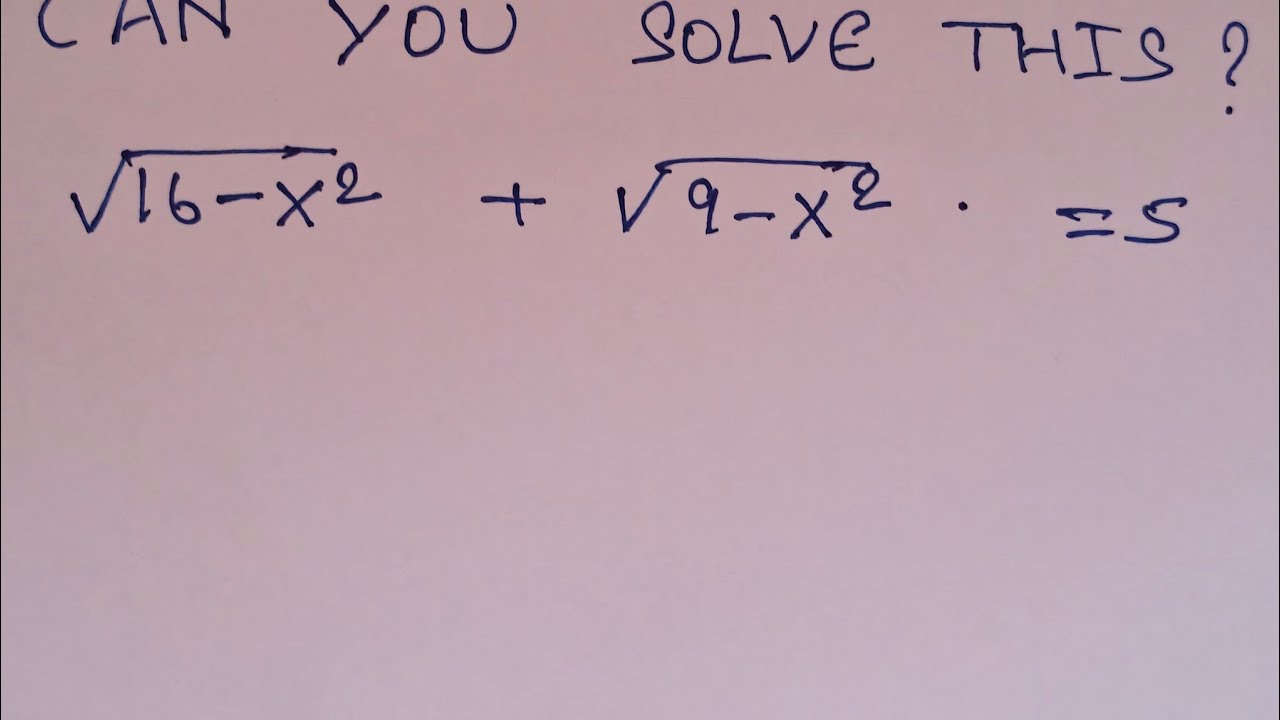 CAN YOU SOLVE THIS?
√16-x² + √9-x² . =5